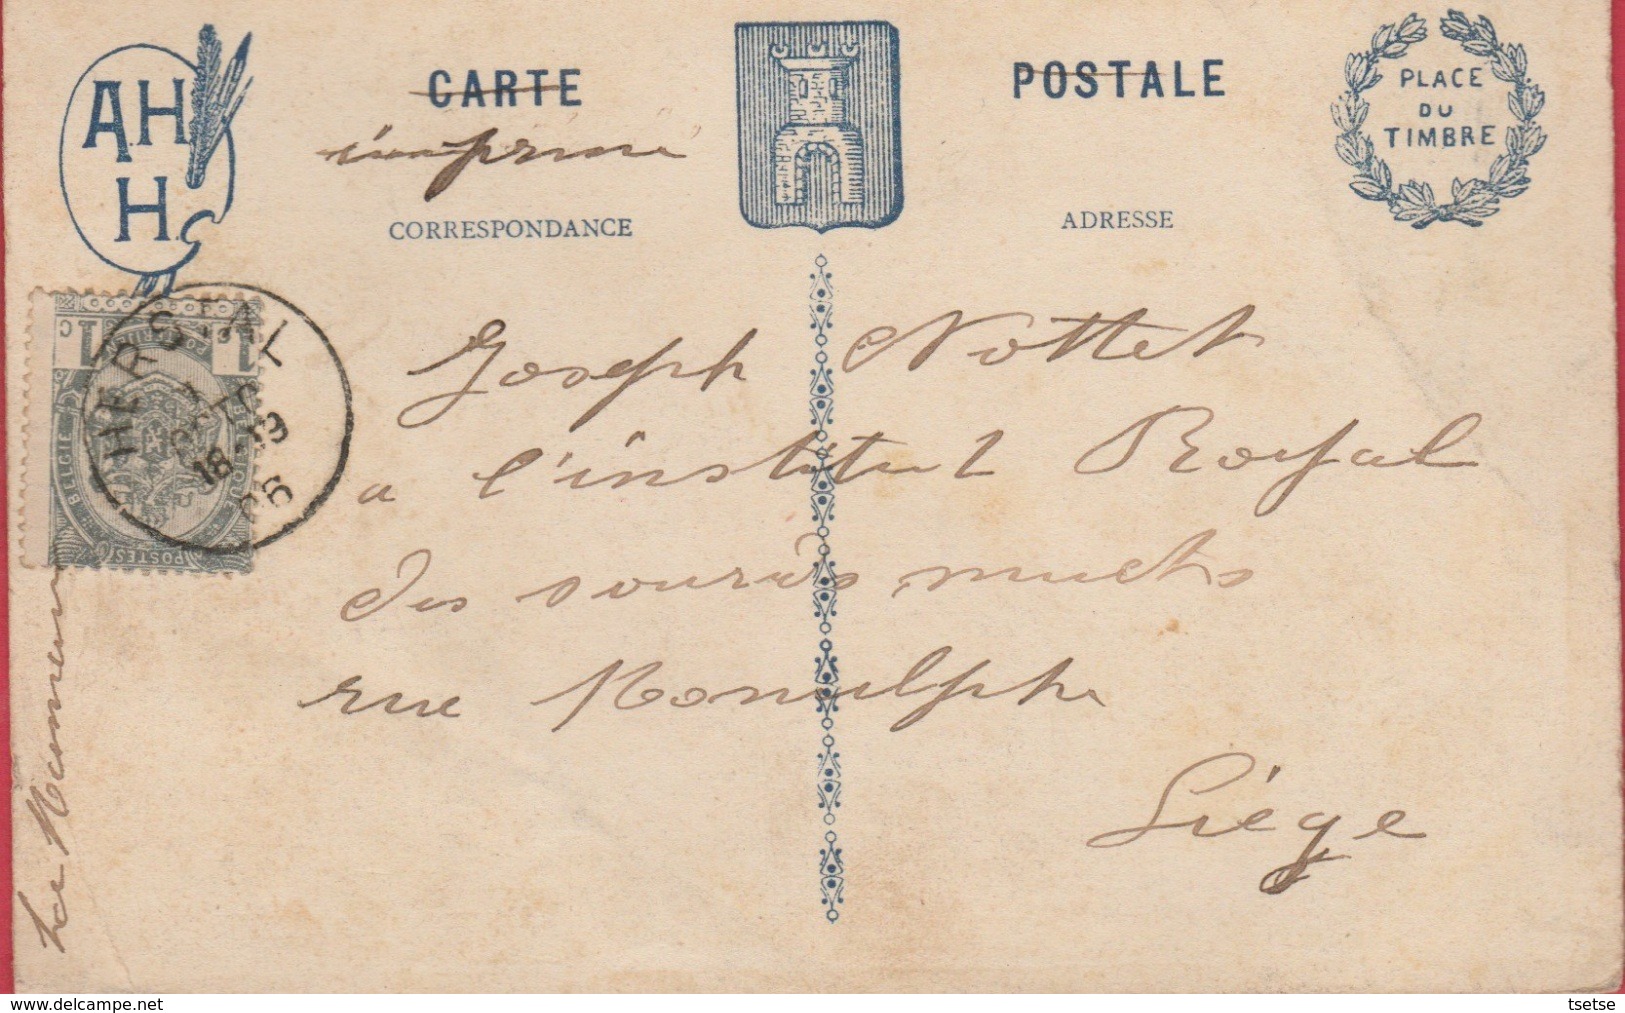 A.H
H.
CARTE
POSTALE
PLACE
DU
TIMBRE
imprimé
CORRESPONDANCE
ADRESSE
HERSTAL
18-19
06
1
C
1
BELGIE
BELGIQUE
POSTES
Joseph Nottet
a l'institut Royal
des sourds muets
rue Monulphe
Liége
www.delcampe.net
tsetse